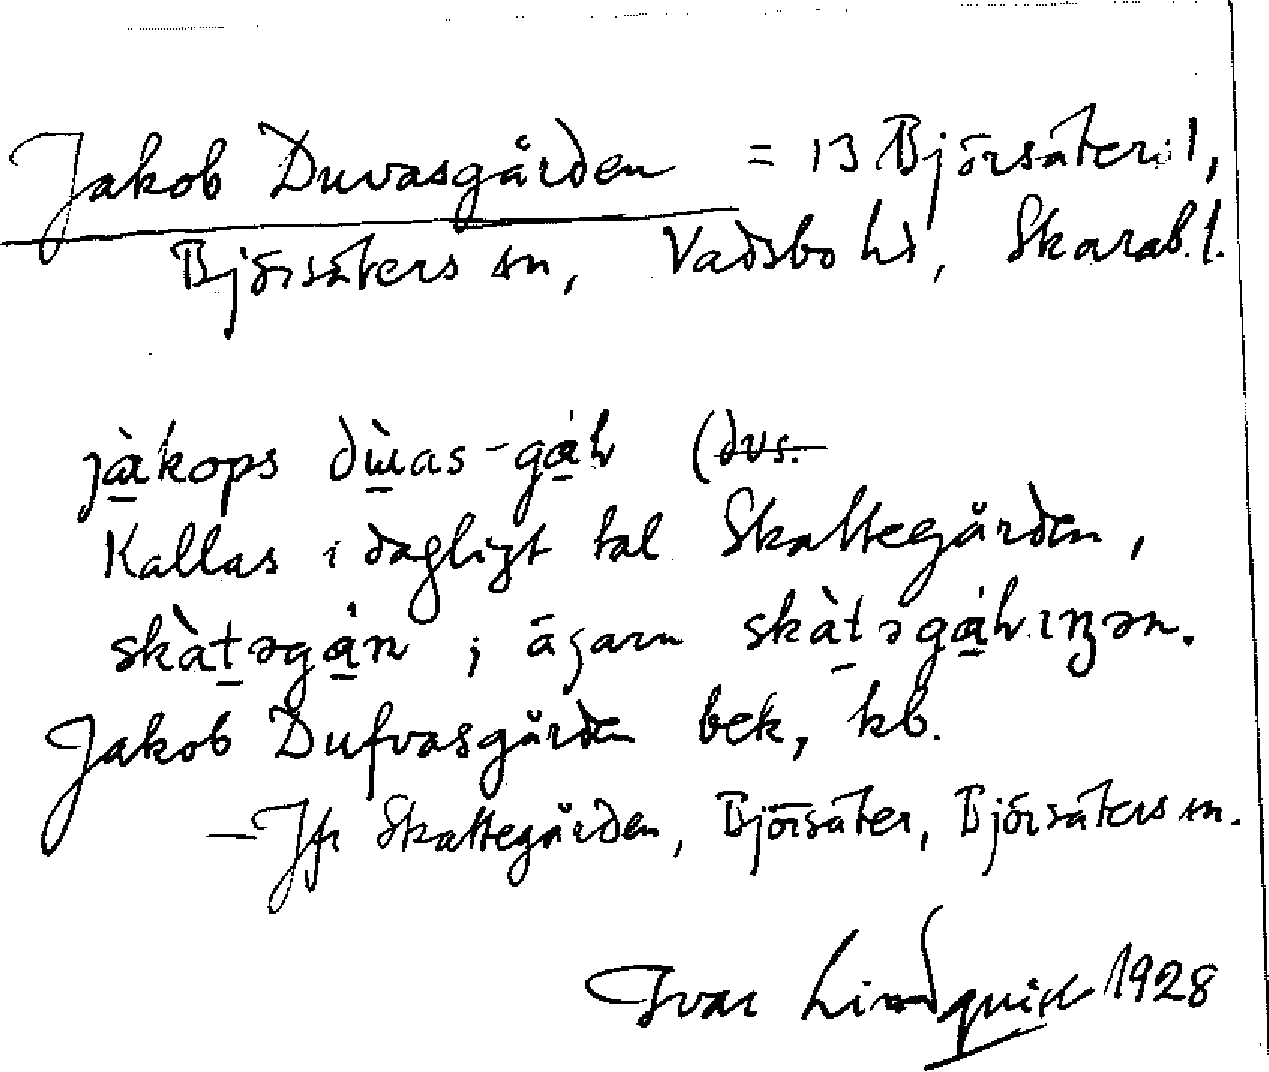 Jakob Duvasgården = 13 Björsäter 1,
Björsäters sn, Vadsbo hd, Skarab. l.
jàkops dùas-gáḷ (dvs.
Kallas i dagligt tal Skattegården,
skàtəgán ; ägarn skàtəgáḷɩŋən.
Jakob Dufvasgården bek, kb.
– Jfr Skattegården, Björsäter, Björsäters sn.
Ivar Lindquist 1928